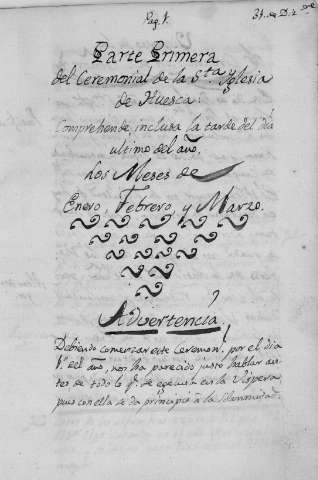 Pag. 1.
31. de D.re
Parte Primera
del Ceremonial de la S.ta Yglesia
de Huesca:
Comprehende, inclusa la tarde del dia
ultimo del año,
los Meses de
Enero, Febrero, y Marzo.
Advertencia
Debiendo comenzar este Ceremon.l por el dia
1.º del año, nos ha parecido justo hablar an-
tes de todo lo q.e se egecuta en la Vispera,
pues con ella se da principio à la Solemnidad